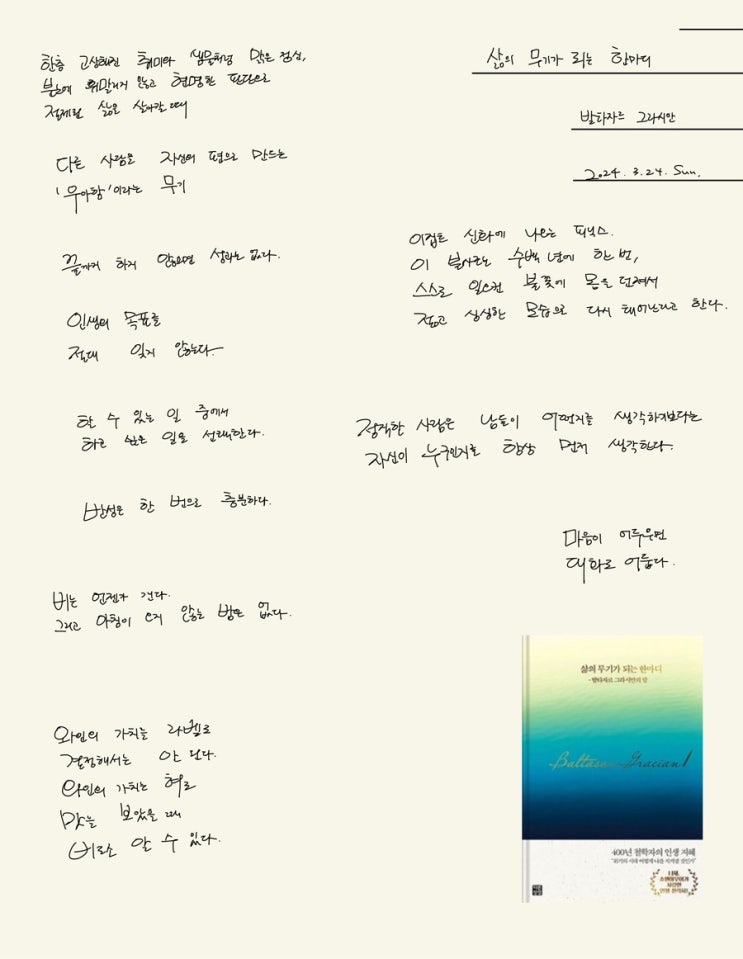 삶의 무기가 되는 한마디
발타자르 그라시안
2024. 3. 24. Sun.
한층 고상해진 취미와 샘물처럼 맑은 정신,
분노에 휘말리지 않고 현명한 판단으로
절제된 삶을 살아갈 때
다른 사람을 자신의 편으로 만드는
'우아함'이라는 무기
끝까지 하지 않으면 성과는 없다.
인생의 목표를
절대 잊지 않는다.
할 수 있는 일 중에서
하고 싶은 일을 선택한다.
반성은 한 번으로 충분하다.
비는 언젠가 갠다.
그리고 아침이 오지 않는 밤은 없다.
와인의 가치는 라벨로
결정해서는 안 된다.
와인의 가치는 혀로
맛을 보았을 때
비로소 알 수 있다.
이집트 신화에 나오는 피닉스.
이 불사조는 수백 년에 한 번,
스스로 일으킨 불꽃에 몸을 던져서
젊고 싱싱한 모습으로 다시 태어난다고 한다.
정직한 사람은 남들이 어떤지를 생각하기보다는
자신이 누구인지를 항상 먼저 생각한다.
마음이 어두우면
대화도 어둡다.
삶의 무기가 되는 한마디
- 발타자르 그라시안의 말
Baltasar Gracian
400년 철학자의 인생 지혜